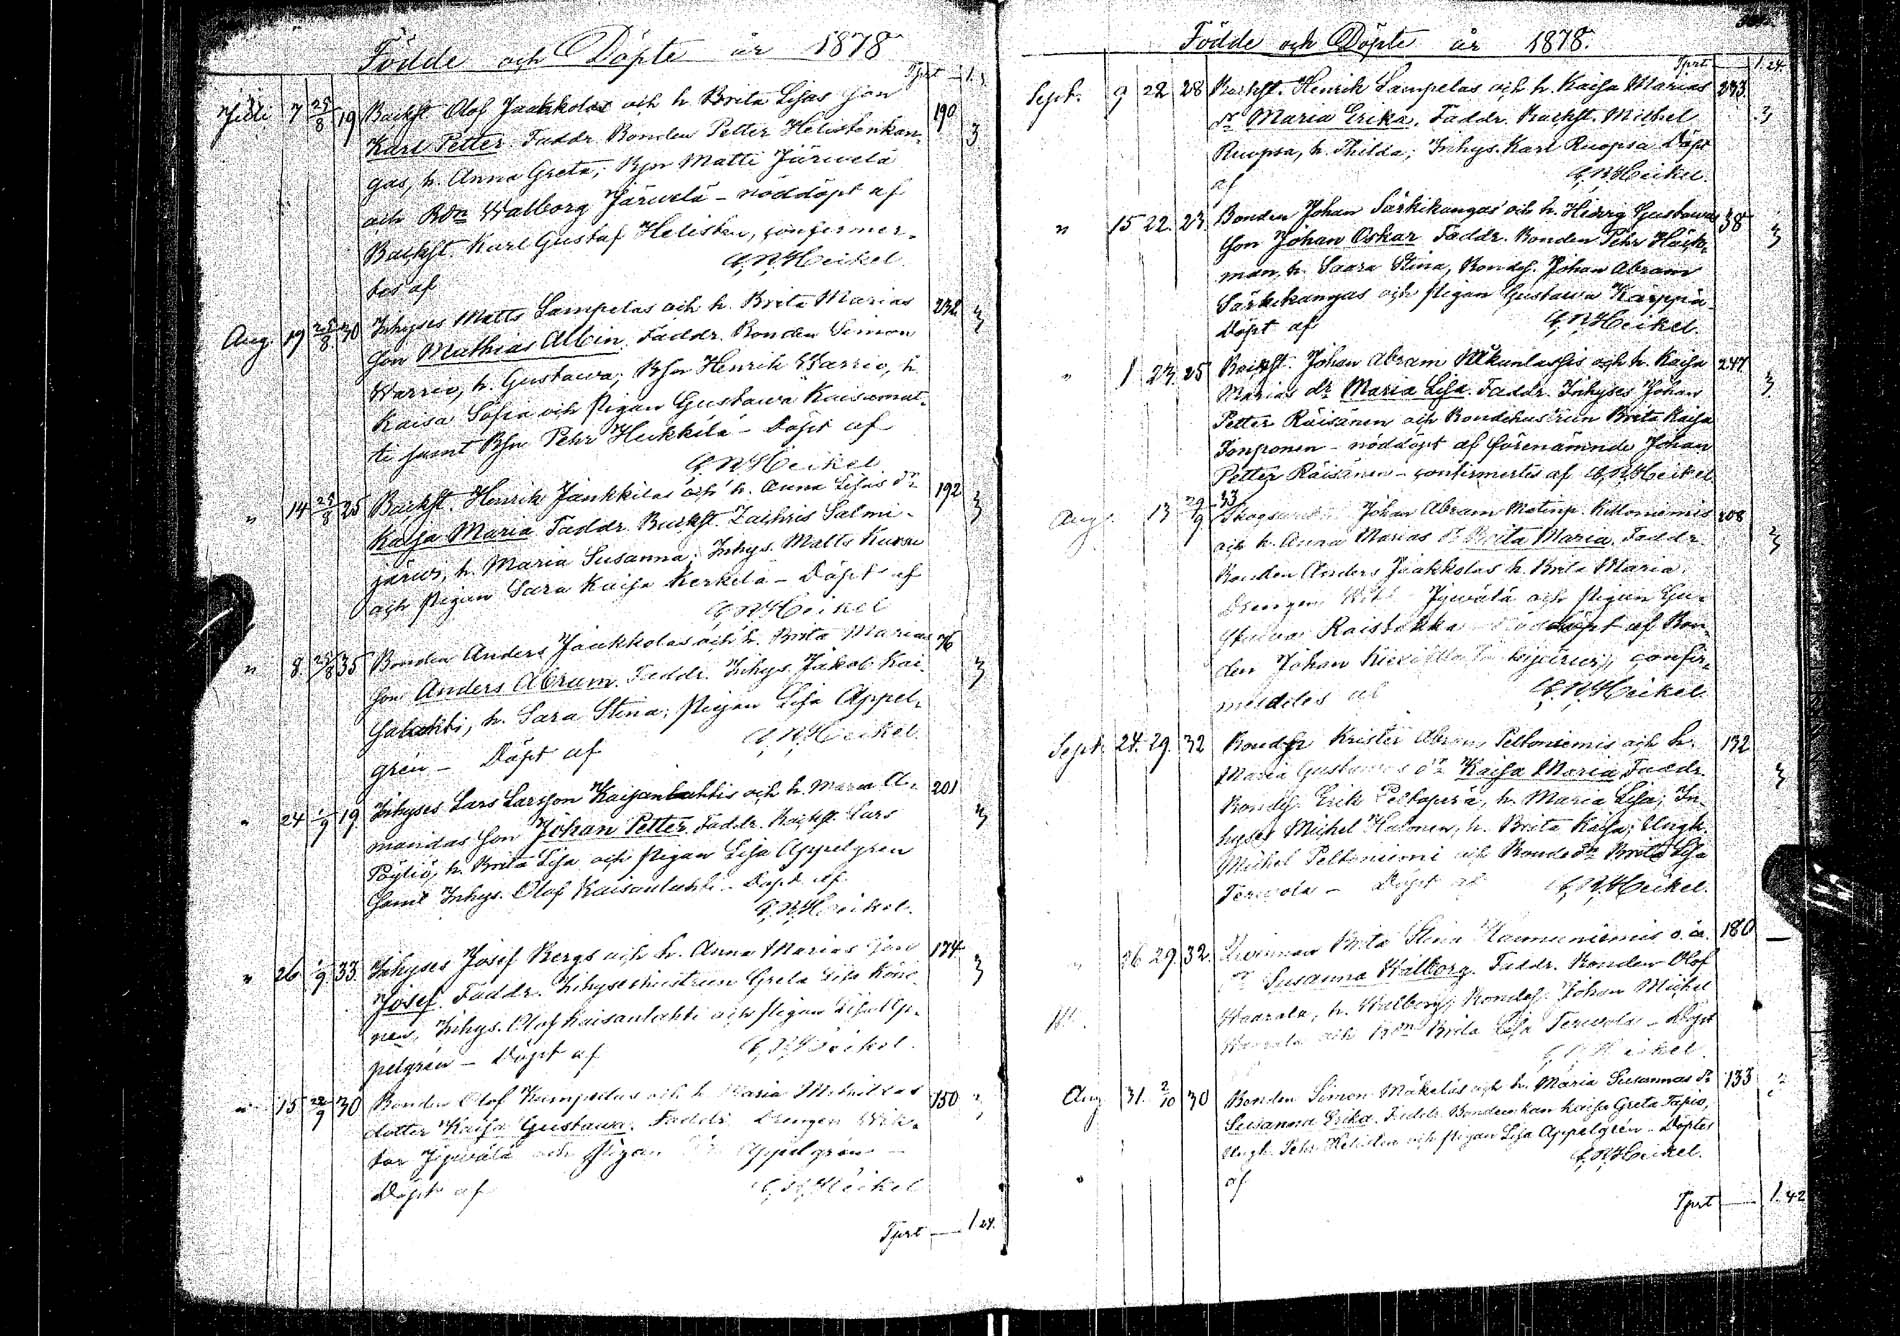 Födde och Döpte år 1878
Tprt — 1.
Juli 7 25/8 19 Backst Olof Jaakkolas och h. Brita Lisas son 190 3
Karl Petter. Faddr. Bonden Petter Helistenkan-
gas, h. Anna Greta; Bsn Matti Järvelä
och Bdn Walborg Järvelä – nöddöpt af
Backst. Karl Gustaf Helisten, confirmer-
tes af A. N. Heikel.
Aug. 19 25/8 30 Inhyses Matts Lampelas och h. Brita Marias 232 3
son Mathias Albin. Faddr. Bonden Simon
Warrio, h. Gustawa; Bsn Henrik Warrio, h.
Kaisa Sofia och pigan Gustawa Kaisamat-
ti samt Bsn Pehr Heikkilä – Döpt af
A. N. Heikel
" 14 25/8 25 Backst. Henrik Jänkkiläs och h. Anna Lisas dr 192 3
Kaisa Maria. Faddr. Backst. Zachris Salmi-
järwi, h. Maria Susanna; Inhys. Matts
och pigan Sara Kaisa Kerkelä – Döpt af
A. N. Heikel
" 8 25/8 35 Bonden Anders Jaakkolas och h. Brita Marias 76 3
son Anders Abram. Faddr. Inhys. Jakob Kai-
salahti, h. Sara Stina; pigan Lisa Appel-
grén – Döpt af A. N. Heikel.
" 24 1/9 19 Inhyses Lars Larsson Kaisanlahtis och h. Maria A- 201 3
mandas son Johan Petter. Faddr. Backst. Lars
Pöyliö, h. Brita Lisa och pigan Lisa Appelgren
samt Inhys. Olof Kaisanlahti – Döpt af
A. N. Heikel.
" 26 1/9 33 Inhyses Josef Bergs och h. Anna Marias son 174 3
Josef. Faddr. Inhyseshustrun Greta Lisa Könö-
nen, Inhys. Olof Kaisanlahti och pigan Lisa Ap-
pelgrén – Döpt af A. N. Heikel.
" 15 22/9 30 Bonden Olof Kumpulas och h. Maria Mathildas 150 3
dotter Kaisa Gustawa. Faddr. Drengen Wik-
tor Jywälä och pigan Appelgrén –
Döpt af A. N. Heikel
Tprt — 1 24.
Födde och Döpte år 1878.
Tprt — 1.24.
Sept. 9 22 28 Backst. Henrik Lampelas och h. Kaisa Marias 233 3
dr Maria Erika. Faddr. Backst. Michel
Ruopsa, h. Thilda; Inhys. Karl Ruopsa Döpt
af A. N. Heikel.
" 15 22. 23. Bonden Johan Särkikangas och h. Hedvig Gustawas 38 3
son Johan Oskar. Faddr. Bonden Pehr Häck-
man, h. Saara Stina, Bondes. Johan Abram
Särkikangas och pigan Gustawa Karppin
Döpt af A. N. Heikel.
" 1 23. 25 Backst. Johan Abram och h. Kaisa 247 3
Marias dr Maria Lisa. Faddr. Inhyses Johan
Petter Räisänen och Bondehustrun Brita Kaisa
Timponen – nöddöpt af förenämnde Johan
Petter Räisänen – confirmertes af A. N. Heikel
Aug. 13 29/9 33 Johan Abram Matinp. Kettoniemis 208 3
och h. Anna Marias dr Brita Maria. Faddr.
Bonden Anders Jaakkolas h. Brita Maria;
Drengen Jywälä och pigan Gu-
stawa Raistakka nöddöpt af Bon-
den Johan confir-
merades af A. N. Heikel.
Sept. 24. 29. 32 Bondes Krister Abram Peltoniemis och h. 132 3
Maria Gustawas dr Kaisa Maria. Faddr.
Bondes. Erik Peltoperä, h. Maria Lisa; In-
hyses Michel Halonen, h. Brita Kaisa; Yngl.
Michel Peltoniemi och Bonded. Brita Lisa
Terwola – Döpt af A. N. Heikel.
" 26. 29. 32. Qwinnan Brita Stina Hamuniemis o. ä. 180 —
dr Susanna Walborg. Faddr. Bonden Olof
Waarala, h. Walborg; Bondes. Johan Michel
Waarala och Bdn Brita Lisa Terwola – Döpt
A. N. Heikel.
Aug 31. 2/10 30 Bonden Simon Mäkeläs och h. Maria Susannas dr 133 3
Susanna Erika. Faddr. Bondeenkan Kaisa Greta Tapio,
Yngl. Pehr Helisten och pigan Lisa Appelgrén – Döptes
af A. N. Heikel.
Tprt — 1.42